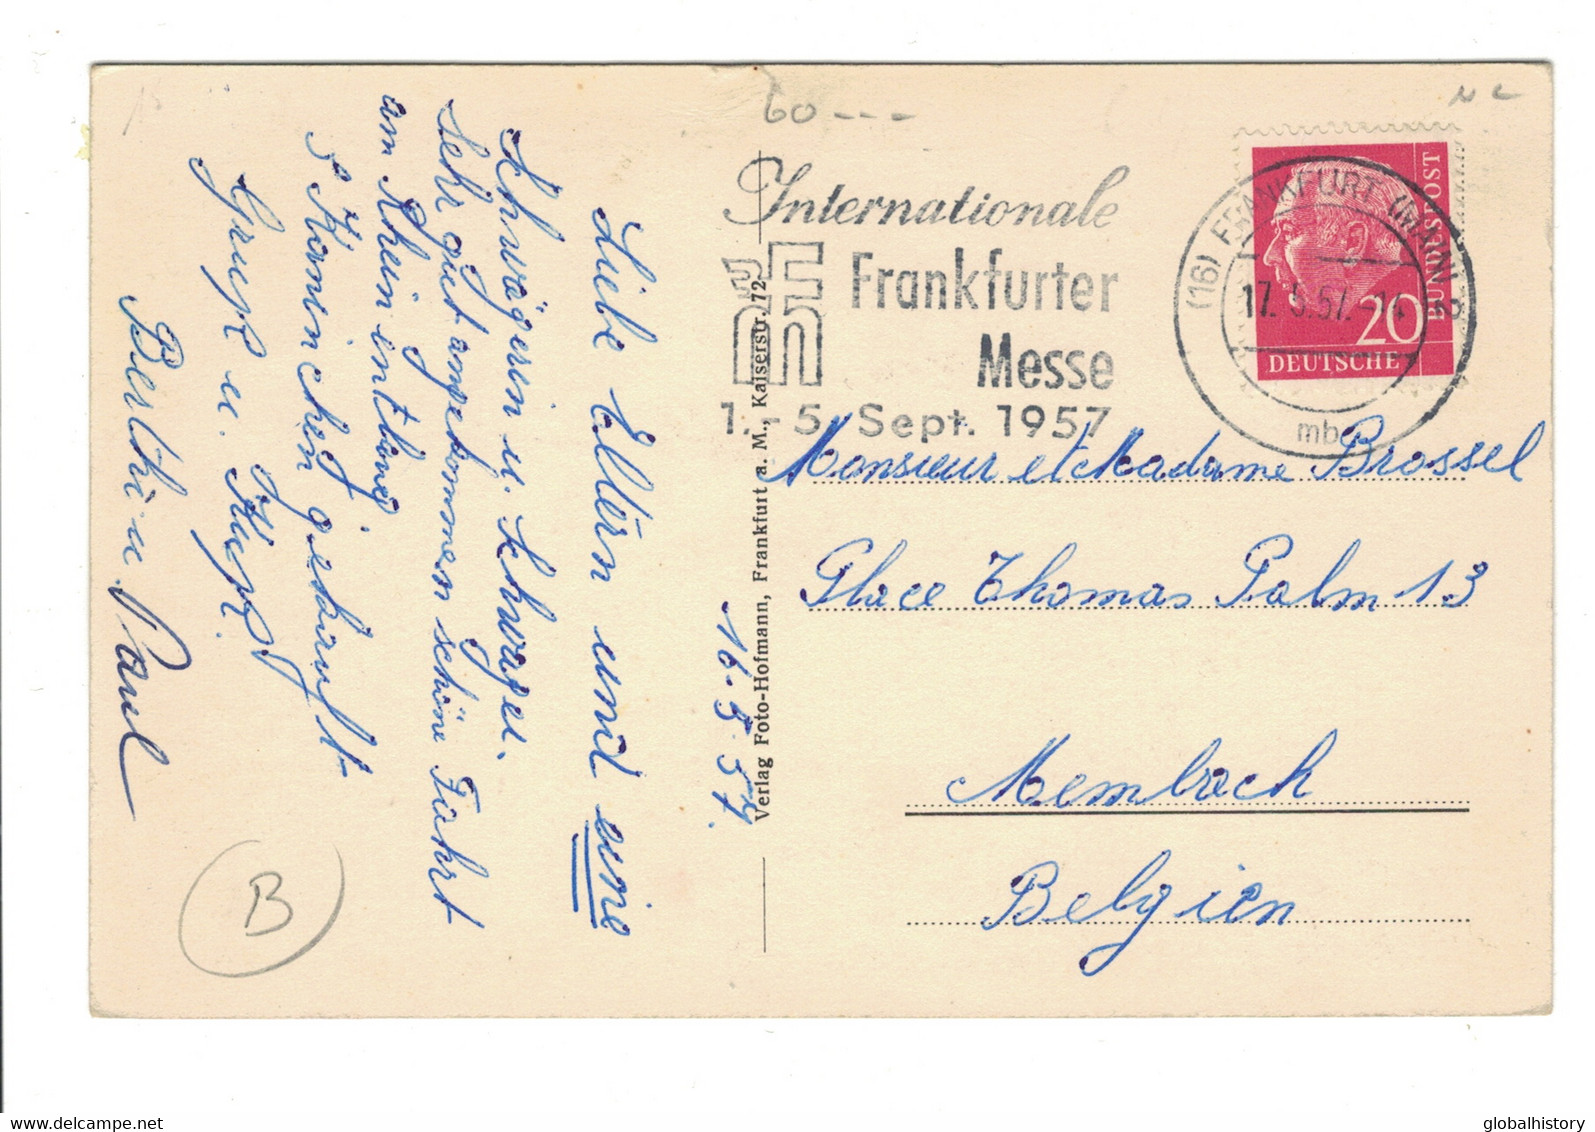 60---
Internationale
Frankfurter
Messe
1.-5. Sept. 1957
(16) FRANKFURT (MAIN)
17.5.57.
mb
20
DEUTSCHE
BUNDESPOST
Monsieur et Madame Brossel
Place Thomas Palm 13
Membach
Belgien
Verlag Foto-Hofmann, Frankfurt a. M., Kaiserstr. 72
16.5.57.
Liebe Eltern und eine
Schwägerin u. Schwager.
Sehr gut angekommen schöne Fahrt
am Rhein entlang
5 Kaninchen gekauft
Grüße u. Küße.
Berthi u Paul
B
globalhistory